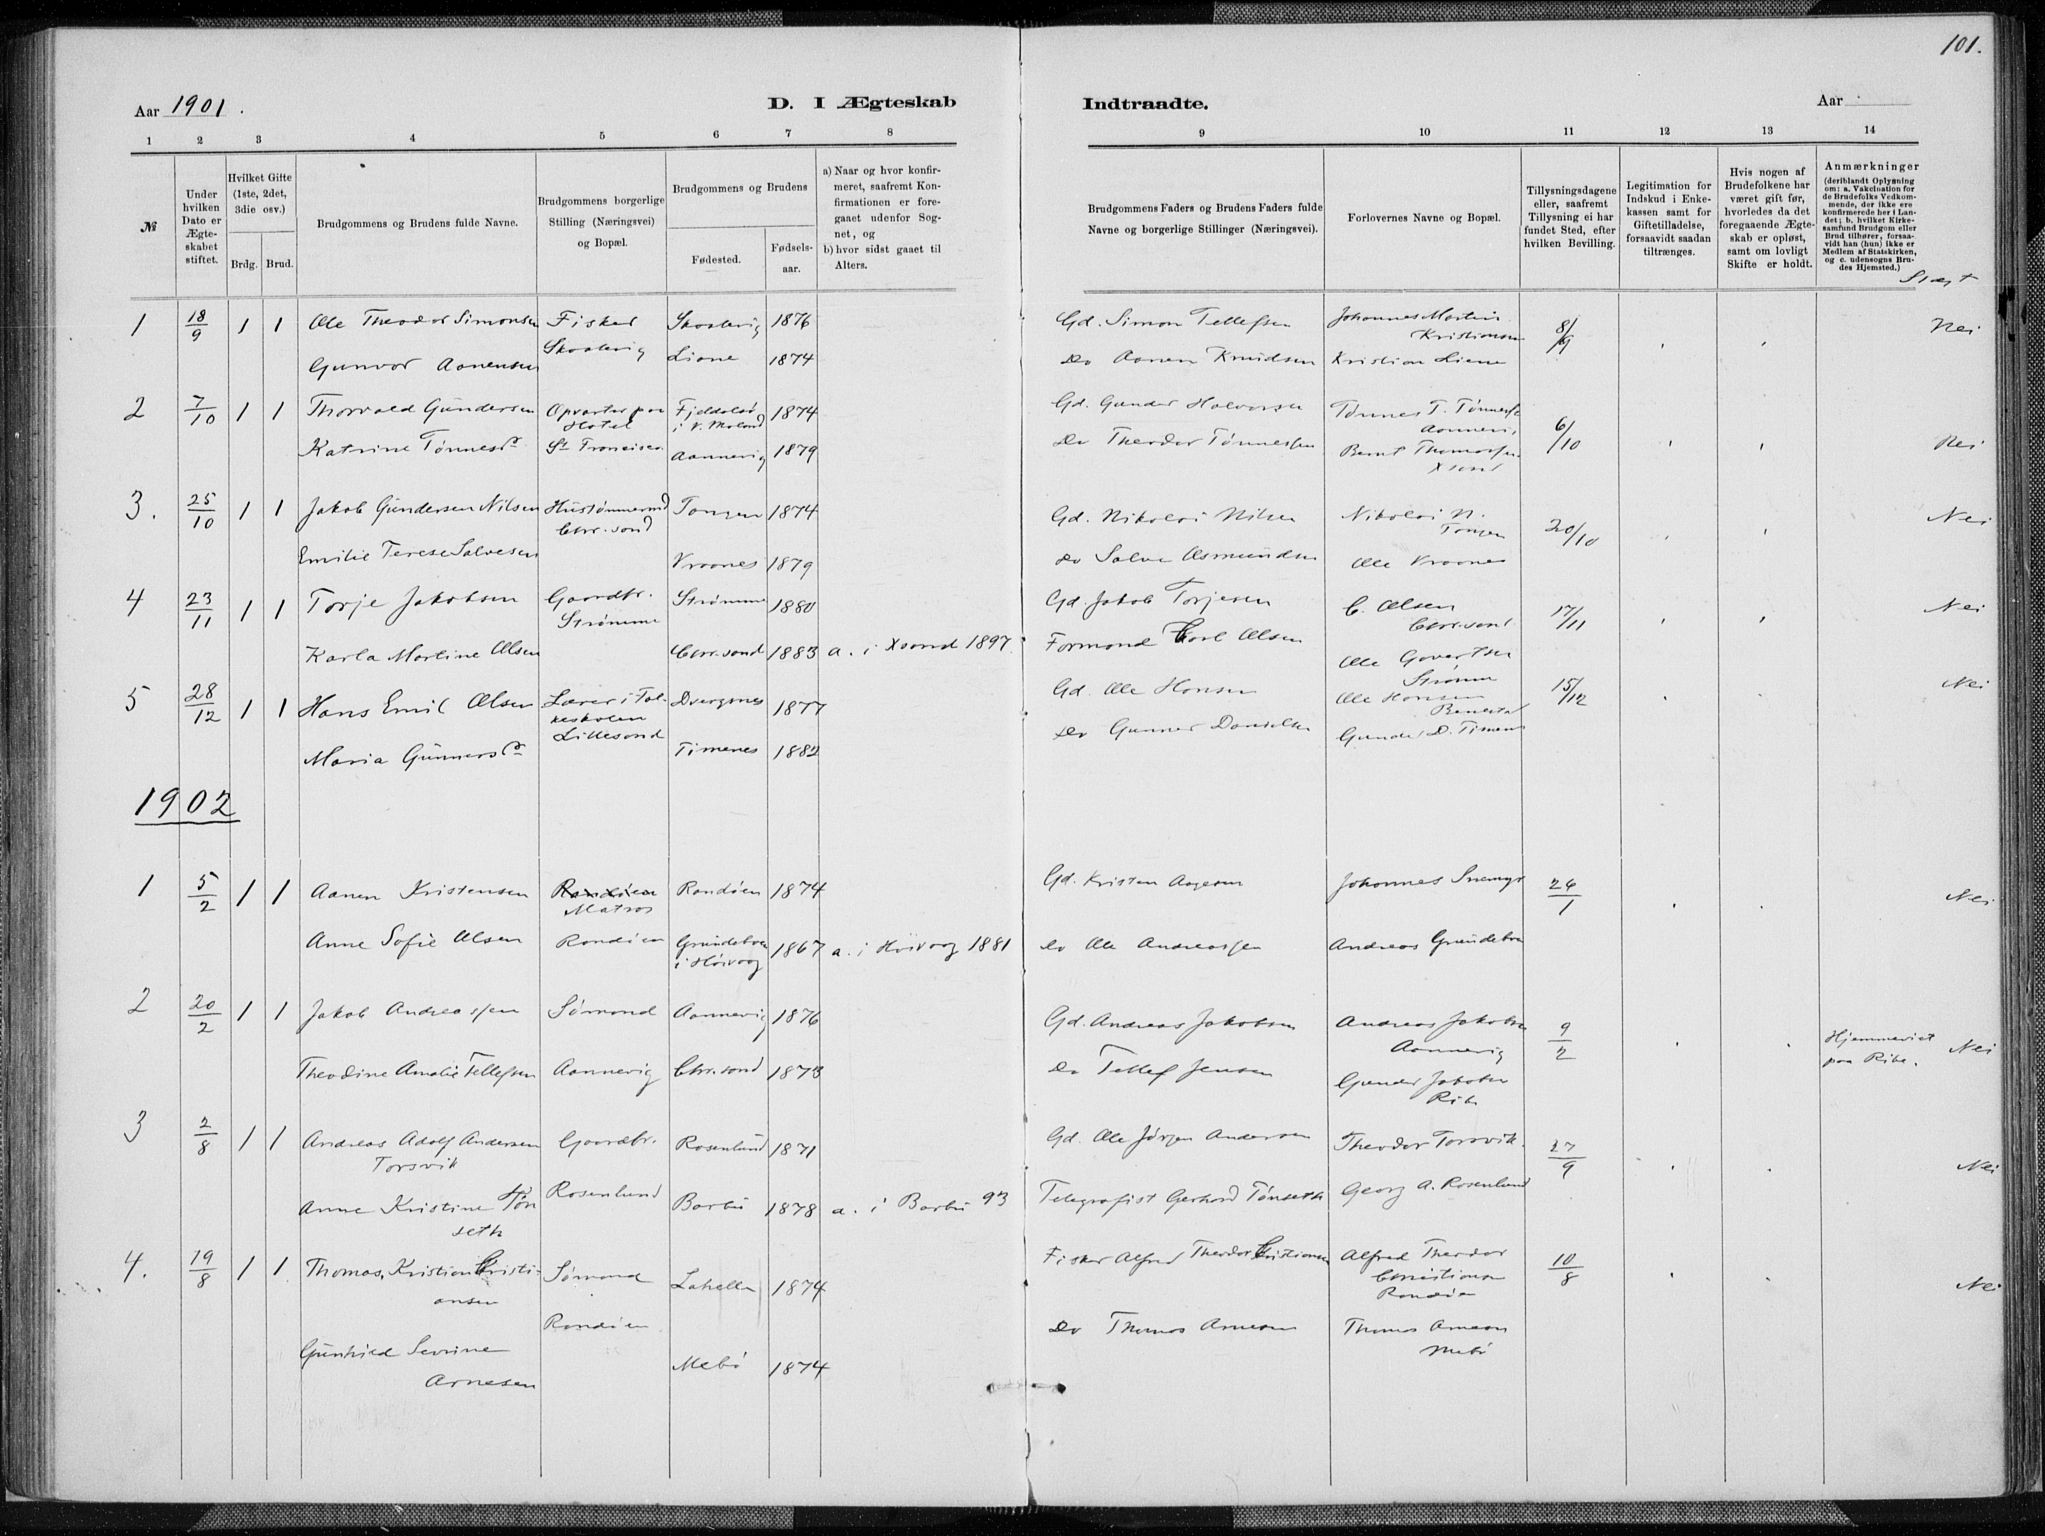 101.
Aar 1901.
D. I Ægteskab Indtraadte.
Aar
1 2 3 4 5 6 7 8 9 10 11 12 13 14
№
Under hvilken Dato er Ægteskabet stiftet.
Hvilket Gifte (1ste, 2det, 3die osv.)
Brdg. Brud.
Brudgommens og Brudens fulde Navne.
Brudgommens borgerlige Stilling (Næringsvei) og Bopæl.
Brudgommens og Brudens
Fødested. Fødselsaar.
a) Naar og hvor konfirmeret, saafremt Konfirmationen er foregaaet udenfor Sognet, og
b) hvor sidst gaaet til Alters.
Brudgommens Faders og Brudens Faders fulde Navne og borgerlige Stillinger (Næringsvei).
Forlovernes Navne og Bopæl.
Tillysningsdagene eller, saafremt Tillysning ei har fundet Sted, efter hvilken Bevilling.
Legitimation for Indskud i Enkekassen samt for Giftetilladelse, forsaavidt saadan tiltrænges.
Hvis nogen af Brudefolkene har været gift før, hvorledes da det foregaaende Ægteskab er opløst, samt om lovligt Skifte er holdt.
Anmærkninger
(deriblandt Oplysning om: a. Vakcination for de Brudefolks Vedkommende, der ikke ere konfirmerede her i Landet; b. hvilket Kirkesamfund Brudgom eller Brud tilhører, forsaavidt han (hun) ikke er Medlem af Statskirken, og c. udensogns Brudes Hjemsted.)
Slægt
1 18/9 1 1 Ole Theodor Simonsen Fisker Skaalevig 1876 Gd. Simon Tellefsen Johannes Martin Kristiansen 8/9 Nei
Gunvor Aanensen Skaalevig Liane 1874 Do Aanen Knudsen Kristian Liene
2 7/10 1 1 Thorvald Gundersen Opvarter paa Hotel 1874 Gd. Gunder Halvorsen Tønnes T. Tønnesen Aannevig 6/10 Nei
i V. Moland
Katrine Tønnesd. St Francisco Aannevig 1879 Do Theodor Tønnessen Bernt Thomassen Xsand
3. 25/10 1 1 Jakob Gundersen Nilsen Hustømmermd Chr.sand Tangen 1874 Gd. Nikolai Nilsen Nikolai N. Tangen 20/10 Nei
Emilie Terese Salvesen Vraanes 1879 Do Salve Asmundsen Ole Vraanes
4 23/11 1 1 Torje Jakobsen Gaardbr. Strømme Strømme 1880 Gd. Jakob Torjesen C. Olsen Chr.sand 17/11 Nei
Karla Martine Olsen Chr.sand 1883 a. i Xsand 1897 Formand Carl Olsen Ole Govertsen Strømme
5 28/12 1 1 Hans Emil Olsen Lærer i Folkeskolen Lillesand Dvergsnes 1877 Gd. Ole Hansen Ole Hansen 15/12 Nei
Maria Gunnersd. Timenes 1882 Do Gunner Danielsen Gunder D. Timenes
1902
1 5/2 1 1 Aanen Kristensen Randøen Matros Randøen 1874 Gd. Kristen Aagesen Johannes 26/1 Nei
Anne Sofie Olsen Randøen Grundebæk i Høivaag 1867 a. i Høivaag 1881 Do Ole Andreassen Andreas
2 20/2 1 1 Jakob Andreassen Sømand Aannevig 1876 Gd. Andreas Jakobsen Andreas Jakobsen Aannevig 9/2 Hjemmeviet paa Ribe. Nei
Theodine Amalie Tellefsen Aannevig Chr.sand 1873 Do Tellef Jensen Gunder Jakobsen Ribe
3 2/8 1 1 Andreas Adolf Andersen Torsvik Gaardbr. Rosenlund 1871 Gd. Ole Jørgen Andersen Theodor Torsvik. 27/9 Nei
Anne Kristine Tønseth Rosenlund Barbu 1878 a. i Barbu 93 Telegrafist Gerhard Tønseth Georg A. Rosenlund
4. 19/8 1 1 Thomas Kristian Cristiansen Sømand Lahelle 1874 Fisker Alfred Theodor Cristiansen Alfred Theodor Christiansen Randøen 10/8 Nei
Gunhild Sevrine Arnesen Randøen Mebø 1874 Do Thomas Arnesen Thomas Arnesen Mebø